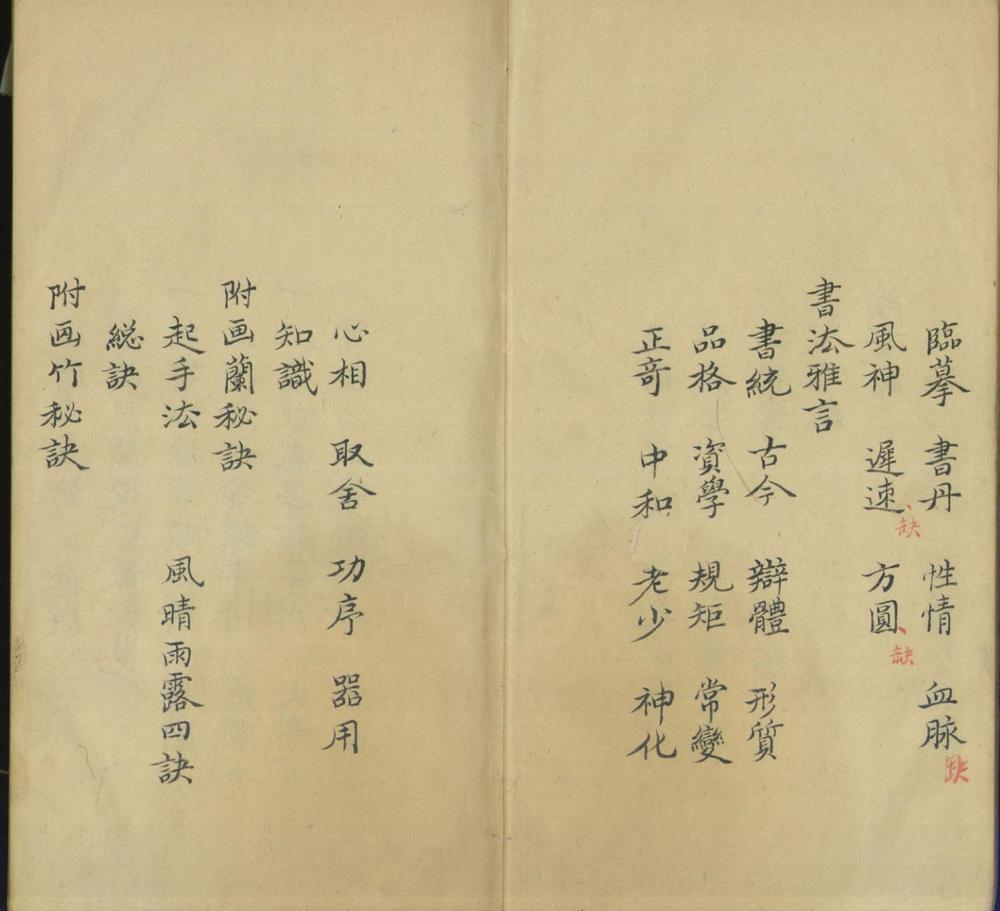 臨摹　書丹　性情　血脉缺
風神　遲速缺　方圓缺
書法雅言
書統　古今　辯體　形質
品格　資學　規矩　常變
正竒　中和　老少　神化
心相　取舍　功序　器用
知識
附画蘭秘訣
起手法　風晴雨露四訣
総訣
附画竹秘訣